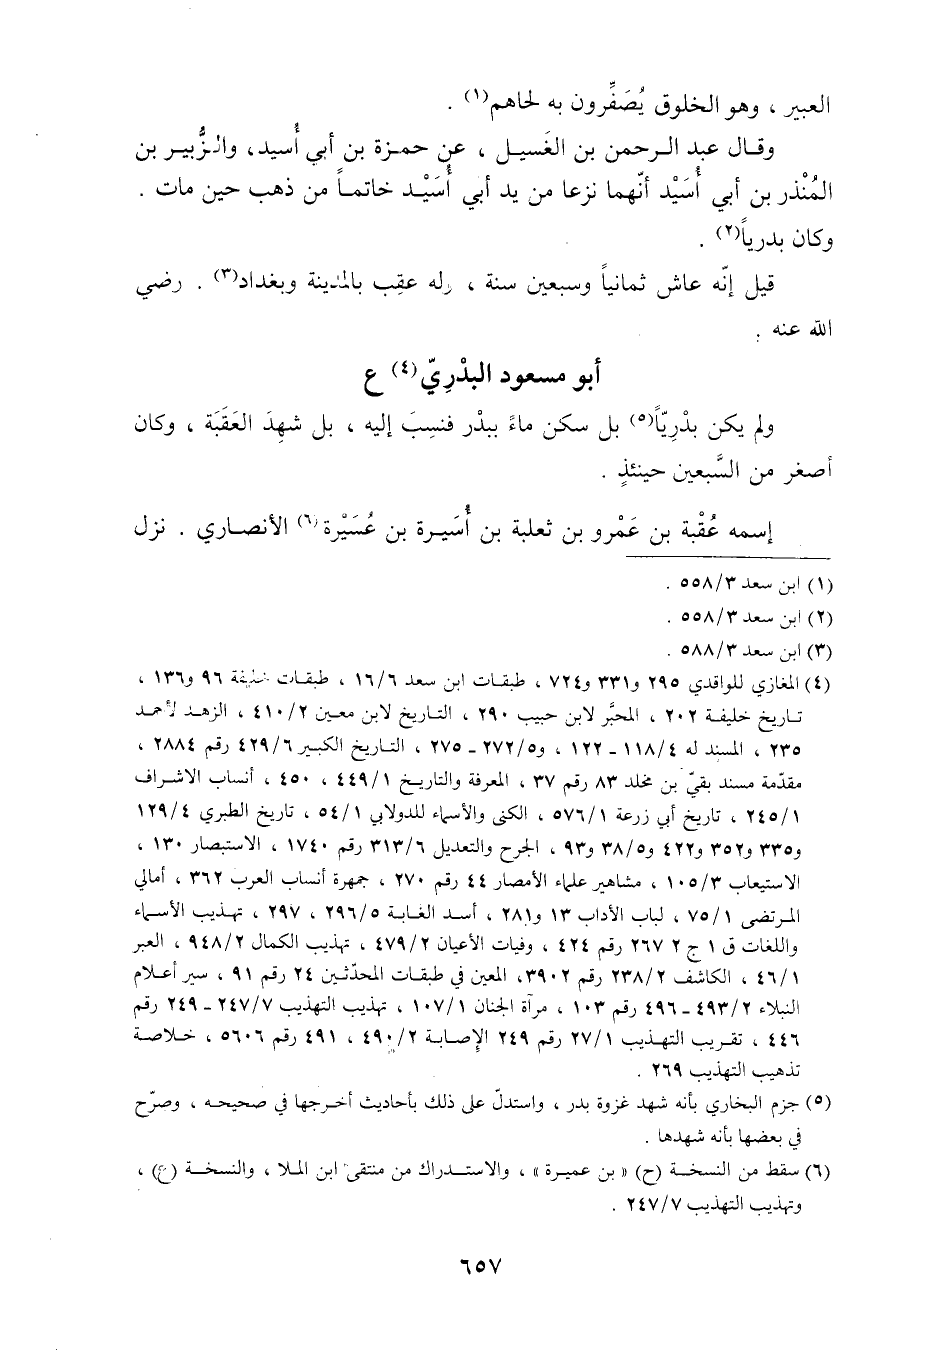 العبير ، وهو الخلوق يُصَفِّرون به لحاهم(١) .
وقال عبد الرحمن بن الغَسيل ، عن حمزة بن أبي أُسيد، والزُّبير بن
المُنْذر بن أبي أُسَيْد أنّهما نزعا من يد أبي أُسَيْد خاتماً من ذهب حين مات .
وكان بدرياً(٢) .
قيل إنّه عاش ثمانياً وسبعين سنة ، وله عقِب بالمدينة وبغداد(٣) . رضي
الله عنه .
أبو مسعود البدْرِيّ(٤) ع
ولم يكن بدْرِيّاً(٥) بل سكن ماءً ببدْر فنسِبَ إليه ، بل شهِدَ العَقَبَة ، وكان
أصغر من السَّبعين حينئذٍ .
إسمه عُقْبة بن عَمْرو بن ثعلبة بن أُسَيرة بن عُسَيْرة(٦) الأنصاري . نزل
(١) ابن سعد ٥٥٨/٣ .
(٢) ابن سعد ٥٥٨/٣ .
(٣) ابن سعد ٥٨٨/٣ .
(٤) المغازي للواقدي ٢٩٥ و٣٣١ و٧٢٤ ، طبقات ابن سعد ١٦/٦ ، طبقات خليفة ٩٦ و١٣٦ ،
تاريخ خليفة ٢٠٢ ، المحبَّر لابن حبيب ٢٩٠ ، التاريخ لابن معين ٤١٠/٢ ، الزهد لأحمد
٢٣٥ ، المسند له ١١٨/٤ ـ ١٢٢ ، و٢٧٢/٥ ـ ٢٧٥ ، التاريخ الكبير ٤٢٩/٦ رقم ٢٨٨٤ ،
مقدّمة مسند بقيّ بن مخلد ٨٣ رقم ٣٧ ، المعرفة والتاريخ ٤٤٩/١ ، ٤٥٠ ، أنساب الاشراف
٢٤٥/١ ، تاريخ أبي زرعة ٥٧٦/١ ، الكنى والأسماء للدولابي ٥٤/١ ، تاريخ الطبري ١٢٩/٤
و٣٣٥ و٣٥٢ و٤٢٢ و٣٨/٥ و٩٣ ، الجرح والتعديل ٣١٣/٦ رقم ١٧٤٠ ، الاستبصار ١٣٠ ،
الاستيعاب ١٠٥/٣ ، مشاهير علماء الأمصار ٤٤ رقم ٢٧٠ ، جمهرة أنساب العرب ٣٦٢ ، أمالي
المرتضى ٧٥/١ ، لباب الأداب ١٣ و٢٨١ ، أسد الغابة ٢٩٦/٥ ، ٢٩٧ ، تهذيب الأسماء
واللغات ق ١ ج ٢ ٢٦٧ رقم ٤٢٤ ، وفيات الأعيان ٤٧٩/٢ ، تهذيب الكمال ٩٤٨/٢ ، العبر
٤٦/١ ، الكاشف ٢٣٨/٢ رقم ٣٩٠٢، المعين في طبقات المحدّثين ٢٤ رقم ٩١ ، سير أعلام
النبلاء ٤٩٣/٢ ـ ٤٩٦ رقم ١٠٣ ، مرآة الجنان ١٠٧/١ ، تهذيب التهذيب ٢٤٧/٧ ـ ٢٤٩ رقم
٤٤٦ ، تقريب التهذيب ٢٧/١ رقم ٢٤٩ الإصابة ٤٩٠/٢ ، ٤٩١ رقم ٥٦٠٦ ، خلاصة
تذهيب التهذيب ٢٦٩ .
(٥) جزم البخاري بأنه شهد غزوة بدر ، واستدلّ على ذلك بأحاديث أخرجها في صحيحه ، وصرّح
في بعضها بأنه شهدها .
(٦) سقط من النسخة (ح) « بن عميرة » ، والاستدراك من منتقى ابن الملا ، والنسخة (ع) ،
وتهذيب التهذيب ٢٤٧/٧ .
٦٥٧